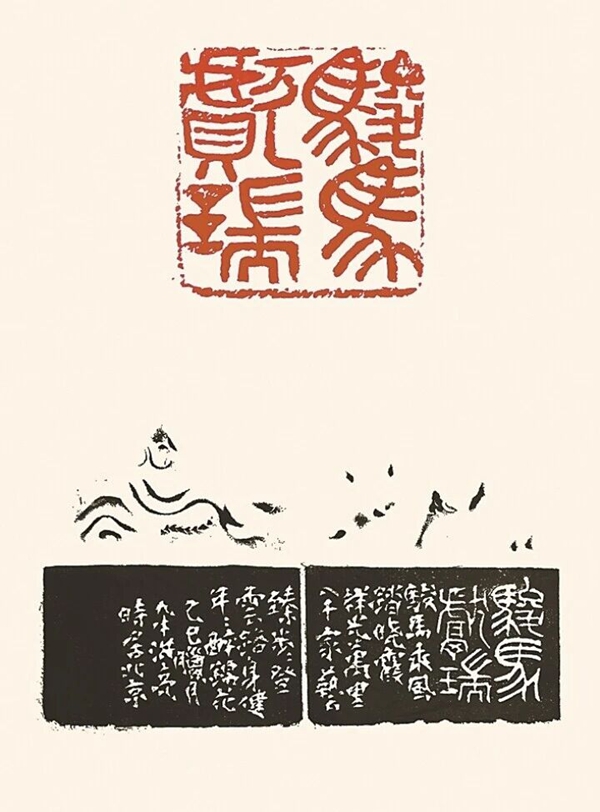 駿馬
獻瑞
駿馬
獻瑞
駿馬乘風
踏曉霞
祥光萬里
八千家藝
臻步々登
雲路身健
年々醉錦花
乙巳臘月
時客北京